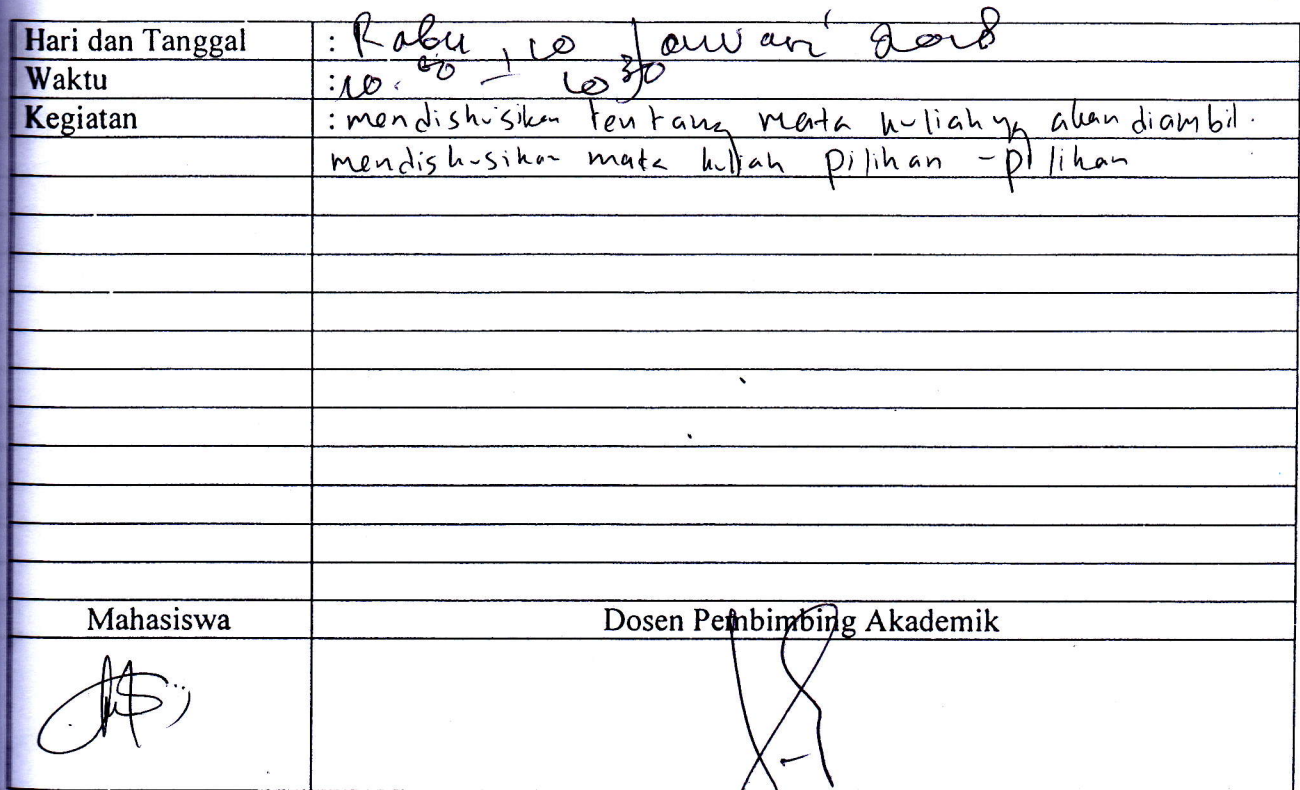 Hari dan Tanggal : Rabu, 10 Januari 2018
Waktu : 10.00 - 10 30
Kegiatan : mendiskusikan tentang mata kuliah yg akan diambil.
mendiskusikan mata kuliah pilihan - pilihan
Mahasiswa Dosen Pembimbing Akademik